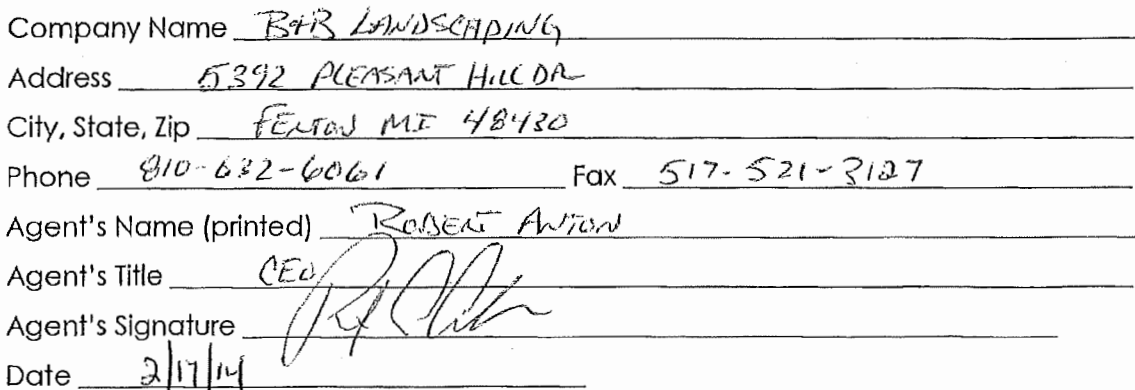 Company Name B+B LANDSCAPING
Address 5392 PLEASANT HILL DR
City, State, Zip FENTON MI 48430
Phone 810-632-6061 Fax 517-521-3127
Agent's Name (printed) ROBERT ANTON
Agent's Title CEO
Agent's Signature
Date 2/17/14